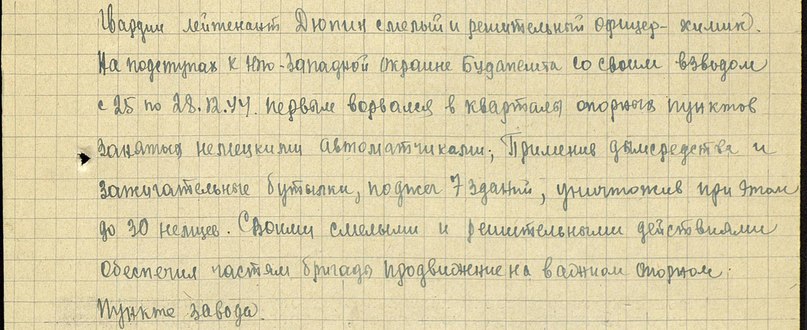 Гвардии лейтенант Дюпин смелый и решительный офицер-химик.
На подступах к Юго-Западной окраине Будапешта со своим взводом
с 25 по 28.12.44. первым ворвался в кварталы опорных пунктов
занятых немецкими автоматчиками; Применив дымсредства и
зажигательные бутылки, поджег 7 зданий, уничтожив при этом
до 30 немцев. Своими смелыми и решительными действиями
обеспечил частям бригады продвижение на важном опорном
пункте завода.